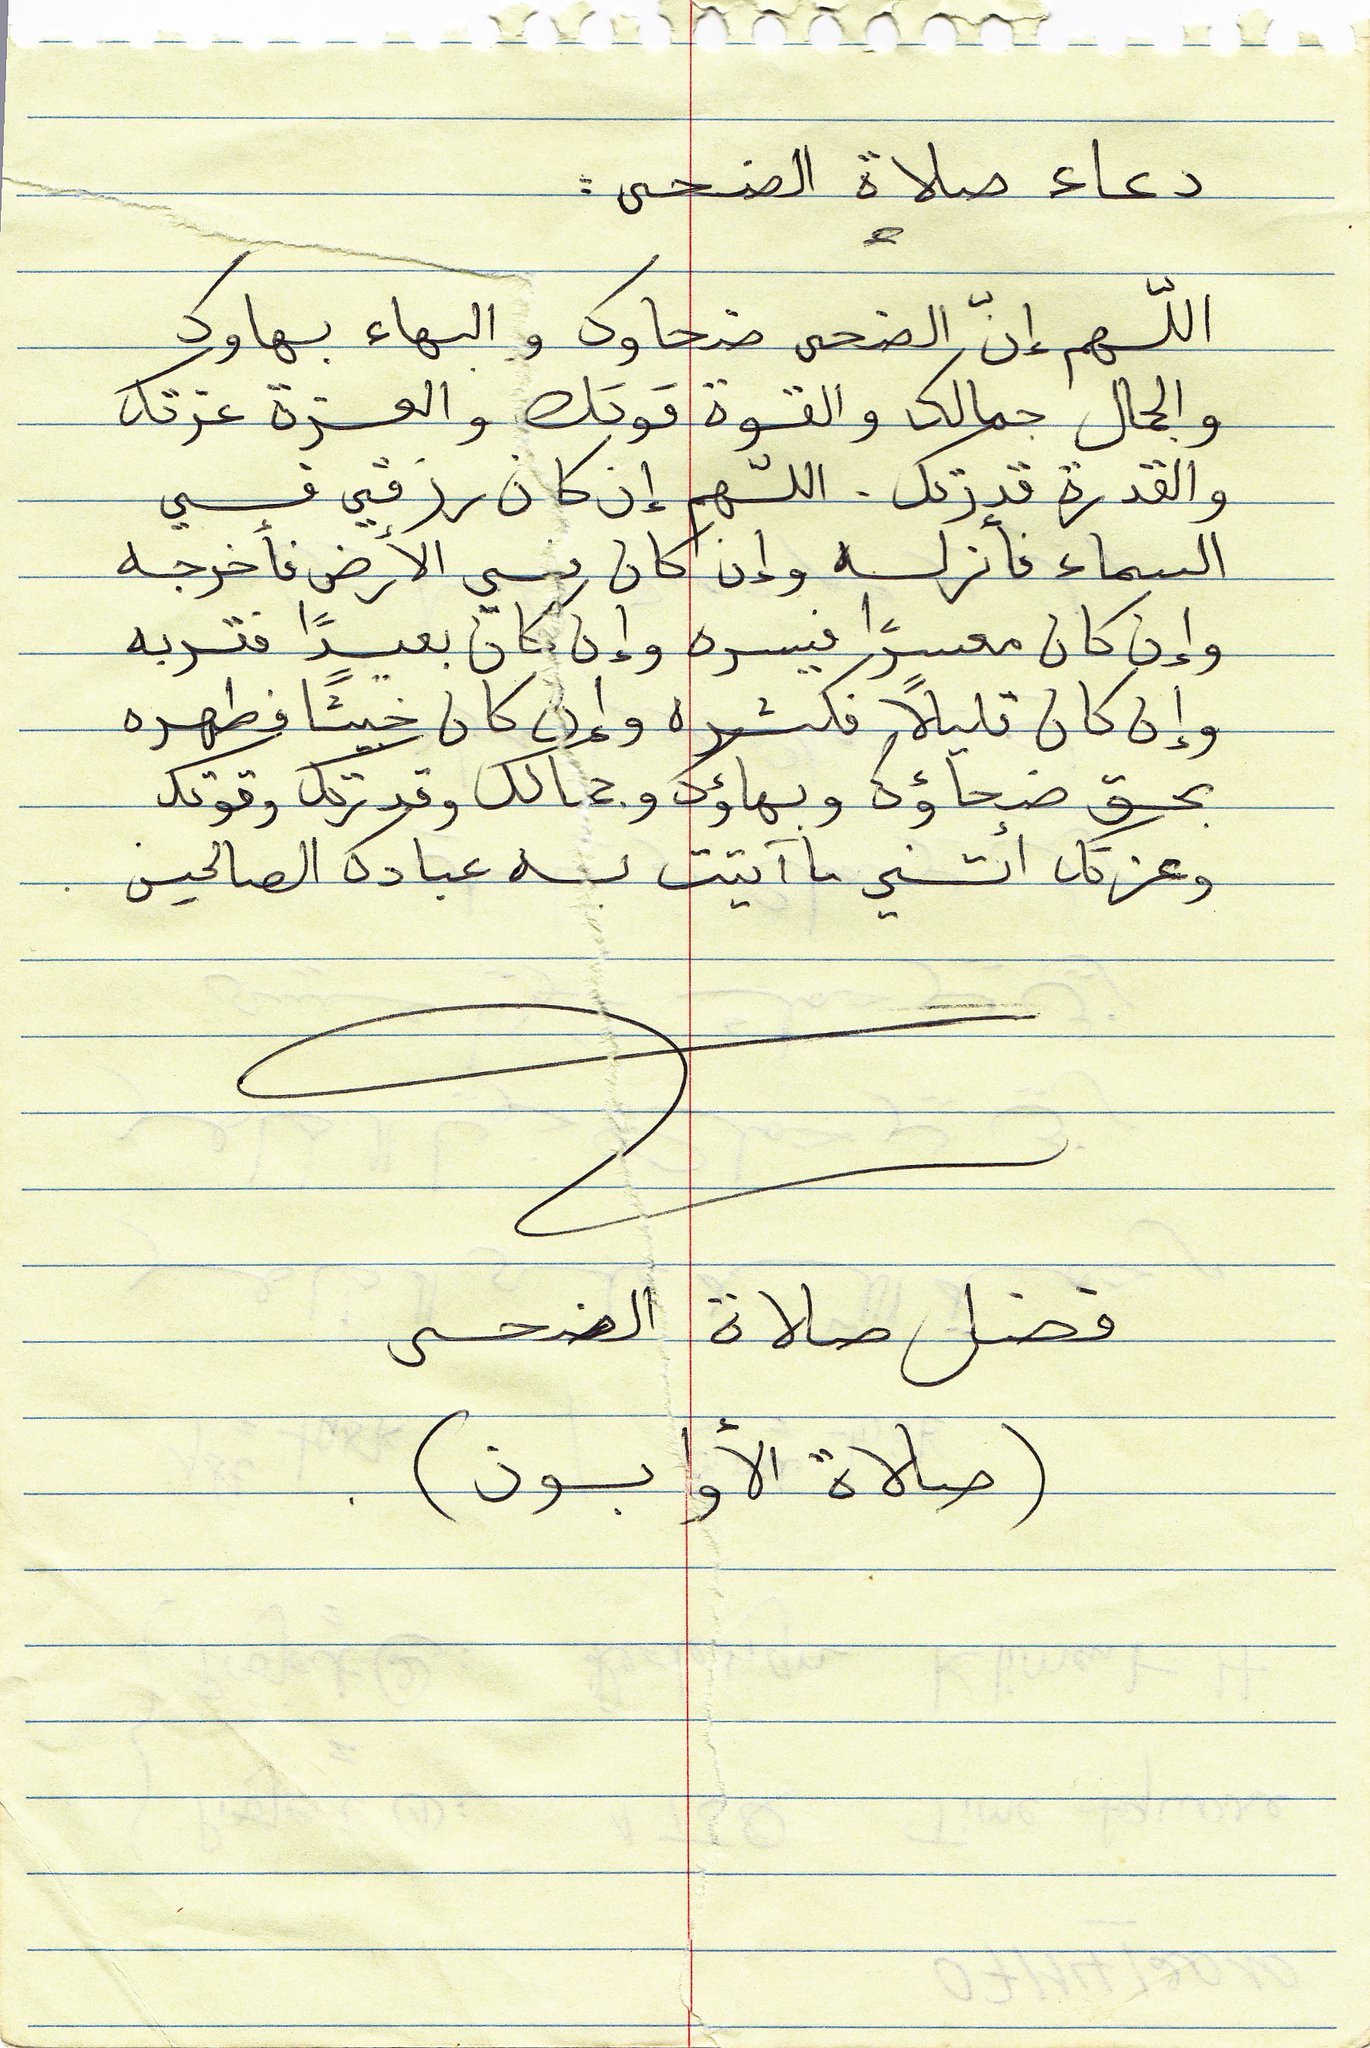 دعاء صلاة الضحى :
اللّهم إنّ الضحى ضحاوك و البهاء بهاوك
والجمال جمالك والقوة قوتك و العزة عزتك
والقدرة قدرتك . اللّهم إن كان رزقي في
السماء فأنزله وإن كان في الأرض فأخرجه
وإن كان معسرًا فيسره وإن كان بعيدًا فقربه
وإن كان قليلاً فكثره وإن كان خبيثا فطهره
بحق ضحاؤك وبهاؤك وجمالك وقدرتك وقوتك
وعزتك أتني ما آتيت به عبادك الصالحين .
فضل صلاة الضحى
(صلاة الأوابون) .